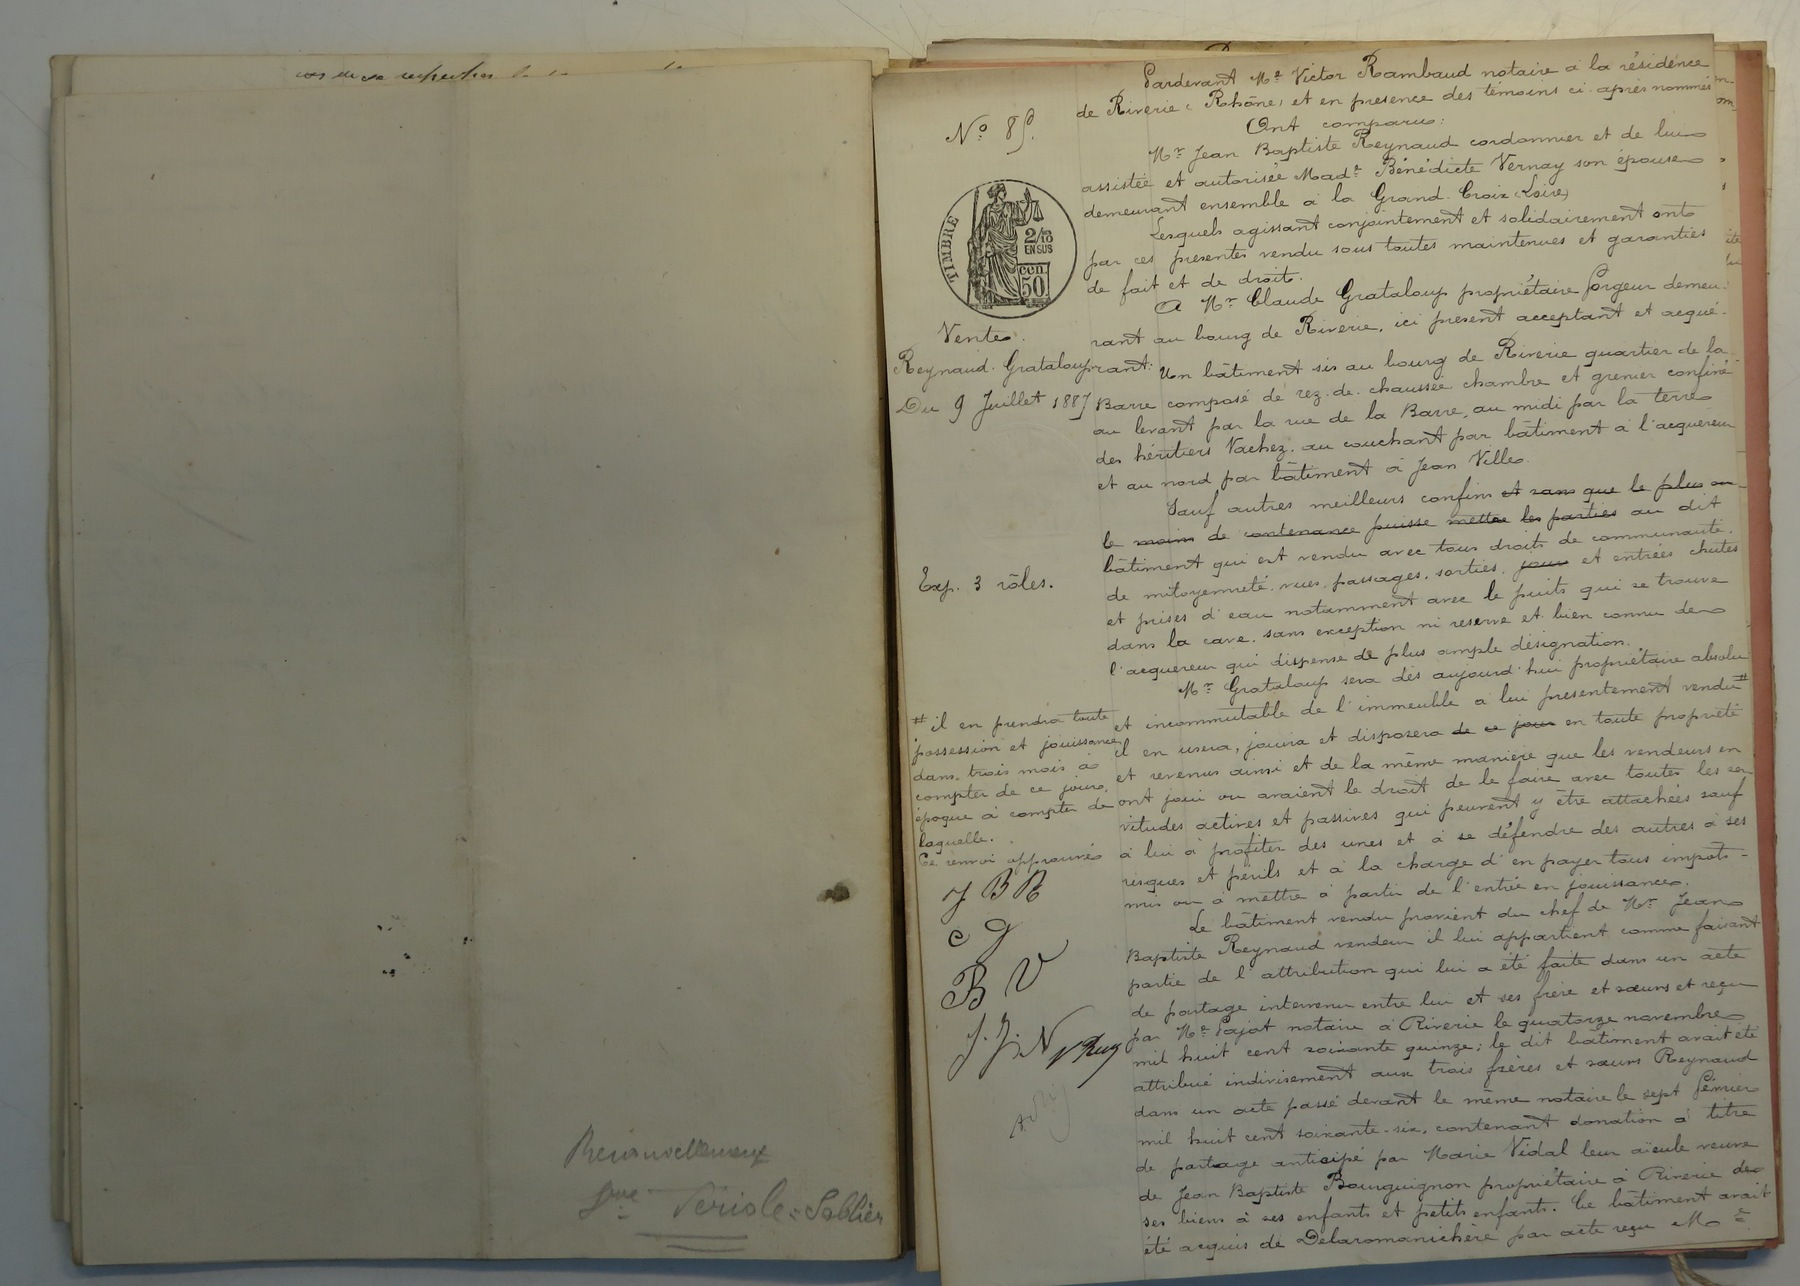 Renouvellement
Pardevant Me Victor Rambaud notaire a la résidence
de Riverie (Rhône) et en presence des témoins ci-après nommés
Ont comparu:
Mr Jean Baptiste Reynaud cordonnier et de lui
assistée et autorisée Made Bénédicte Vernay son épouse
demeurant ensemble à la Grand-Croix (Loire)
Lesquels agissant conjointement et solidairement ont
par ces présentes vendu sous toutes maintenues et garanties
de fait et de droit.
A Mr Claude Grataloup propriétaire forgeur demeu-
rant au bourg de Riverie, ici présent acceptant et acqué-
rant:
Un bâtiment sis au bourg de Riverie quartier de la
Barre composé de rez-de-chaussée chambre et grenier confiné
au levant par la rue de la Barre, au midi par la terre
des héritiers Vachez, au couchant par bâtiment à l'acquéreur
et au nord par bâtiment à Jean Ville.
Sauf autres meilleurs confins et sans que le plus ou
le moins de contenance puisse mettre les parties au dit
bâtiment qui est vendu avec tous droits de communauté,
de mitoyenneté, vues, passages, sorties, jour et entrées chutes
et prises d'eau notamment avec le puits qui se trouve
dans la cave, sans exception ni reserve et bien connu de
l'acquéreur qui dispense de plus ample désignation.
Mr Grataloup sera dès aujourd'hui propriétaire absolu
et incommutable de l'immeuble a lui presentement vendu #
il en usera, jouira et disposera de ce jour en toute propriété
et revenus ainsi et de la même manière que les vendeurs en
ont joui ou avaient le droit de le faire avec toutes les ser
vitudes actives et passives qui peuvent y être attachées sauf
à lui à profiter des unes et à se défendre des autres à ses
risques et périls et à la charge d'en payer tous impots
mis ou à mettre à partir de l'entrée en jouissance.
Le bâtiment vendu provient du chef de Mr Jean
Baptiste Reynaud vendeur il lui appartient comme faisant
partie de l'attribution qui lui a été faite dans un acte
de partage intervenu entre lui et ses frère et sœurs et reçu
par Me Pajot notaire à Riverie le quatorze novembre
mil huit cent soixante quinze; le dit bâtiment avait été
attribué indivisement aux trois frères et sœurs Reynaud
dans un acte passé devant le même notaire le sept février
mil huit cent soixante-six, contenant donation à titre
de partage anticipé par Marie Vidal leur aïeule veuve
de Jean Baptiste Bourguignon propriétaire à Riverie de
ses biens à ses enfants et petits enfants. Ce bâtiment avait
été acquis de Delaromanichère par acte reçu Me
No 89.
TIMBRE
2/10
EN SUS
cen.
50
Vente.
Reynaud-Grataloup
Du 9 Juillet 1887
Exp. 3 rôles.
# il en prendra toute
possession et jouissance
dans trois mois à
compter de ce jour,
époque à compter de
laquelle.
Ce renvoi approuvé
J B R
C G
B V
J. J. N